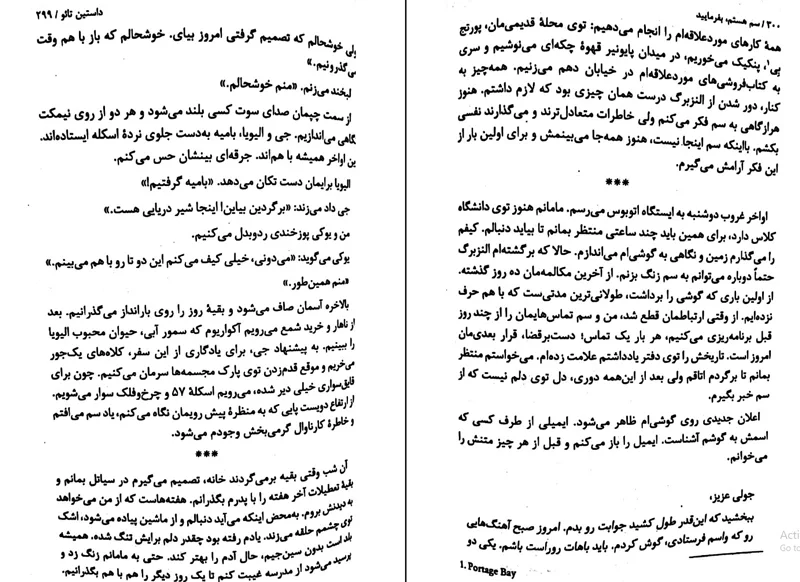 ۳۰۰/ سم هستم، بفرمایید
همهٔ کارهای موردعلاقه‌ام را انجام می‌دهیم: توی محلهٔ قدیمی‌مان، پورتج
بی¹، پنکیک می‌خوریم، در میدان پایونیر قهوهٔ چکه‌ای می‌نوشیم و سری
به کتاب‌فروشی‌های موردعلاقه‌ام در خیابان دهم می‌زنیم. همه‌چیز به
کنار، دور شدن از النزبرگ درست همان چیزی بود که لازم داشتم. هنوز
هرازگاهی به سم فکر می‌کنم ولی خاطرات متعادل‌ترند و می‌گذارند نفسی
بکشم. بااینکه سم اینجا نیست، هنوز همه‌جا می‌بینمش و برای اولین بار از
این فکر آرامش می‌گیرم.
***
اواخر غروب دوشنبه به ایستگاه اتوبوس می‌رسم. مامانم هنوز توی دانشگاه
کلاس دارد، برای همین باید چند ساعتی منتظر بمانم تا بیاید دنبالم. کیفم
را می‌گذارم زمین و نگاهی به گوشی‌ام می‌اندازم. حالا که برگشته‌ام النزبرگ
حتماً دوباره می‌توانم به سم زنگ بزنم. از آخرین مکالمه‌مان ده روز گذشته.
از اولین باری که گوشی را برداشت، طولانی‌ترین مدتی‌ست که با هم حرف
نزده‌ایم. از وقتی ارتباطمان قطع شد، من و سم تماس‌هایمان را از چند روز
قبل برنامه‌ریزی می‌کنیم، هر بار یک تماس؛ دست‌برقضا، قرار بعدی‌مان
امروز است. تاریخش را توی دفتر یادداشتم علامت زده‌ام. می‌خواستم منتظر
بمانم تا برگردم اتاقم ولی بعد از این‌همه دوری، دل توی دلم نیست که از
سم خبر بگیرم.
اعلان جدیدی روی گوشی‌ام ظاهر می‌شود. ایمیلی از طرف کسی که
اسمش به گوشم آشناست. ایمیل را باز می‌کنم و قبل از هر چیز متنش را
می‌خوانم.
جولی عزیز،
ببخشید که این‌قدر طول کشید جوابت رو بدم. امروز صبح آهنگ‌هایی
رو که واسم فرستادی، گوش کردم. باید باهات روراست باشم. یکی دو
1. Portage Bay
داستین تائو / ۲۹۹
ولی خوشحالم که تصمیم گرفتی امروز بیای. خوشحالم که باز با هم وقت
می‌گذرونیم.»
لبخند می‌زنم. «منم خوشحالم.»
از سمت چپمان صدای سوت کسی بلند می‌شود و هر دو از روی نیمکت
نگاهی می‌اندازیم. جی و الیویا، بامیه به‌دست جلوی نردهٔ اسکله ایستاده‌اند.
این اواخر همیشه با هم‌اند. جرقه‌ای بینشان حس می‌کنم.
الیویا برایمان دست تکان می‌دهد. «بامیه گرفتیم!»
جی داد می‌زند: «برگردین بیاین! اینجا شیر دریایی هست.»
من و یوکی پوزخندی ردوبدل می‌کنیم.
یوکی می‌گوید: «می‌دونی، خیلی کیف می‌کنم این دو تا رو با هم می‌بینم.»
«منم همین‌طور.»
بالاخره آسمان صاف می‌شود و بقیهٔ روز را روی بارانداز می‌گذرانیم. بعد
از ناهار و خرید شمع می‌رویم آکواریوم که سمور آبی، حیوان محبوب الیویا
را ببینیم. به پیشنهاد جی، برای یادگاری از این سفر، کلاه‌های یک‌جور
می‌خریم و موقع قدم‌زدن توی پارک مجسمه‌ها سرمان می‌کنیم. چون برای
قایق‌سواری خیلی دیر شده، می‌رویم اسکلهٔ ۵۷ و چرخ‌وفلک سوار می‌شویم.
از ارتفاع دویست پایی که به منظرهٔ پیش رویمان نگاه می‌کنم، یاد سم می‌افتم
و خاطرهٔ کارناوال گرمی‌بخش وجودم می‌شود.
***
آن شب وقتی بقیه برمی‌گردند خانه، تصمیم می‌گیرم در سیاتل بمانم و
بقیهٔ تعطیلات آخر هفته را با پدرم بگذرانم. هفته‌هاست که از من می‌خواهد
به دیدنش بروم. به‌محض اینکه می‌آید دنبالم و از ماشین پیاده می‌شود، اشک
توی چشمم حلقه می‌زند. یادم رفته بود چقدر دلم برایش تنگ شده. همیشه
بلد است بدون سین‌جیم، حال آدم را بهتر کند. حتی به مامانم زنگ زد و
پرسید می‌شود از مدرسه غیبت کنم تا یک روز دیگر را هم با هم بگذرانیم.